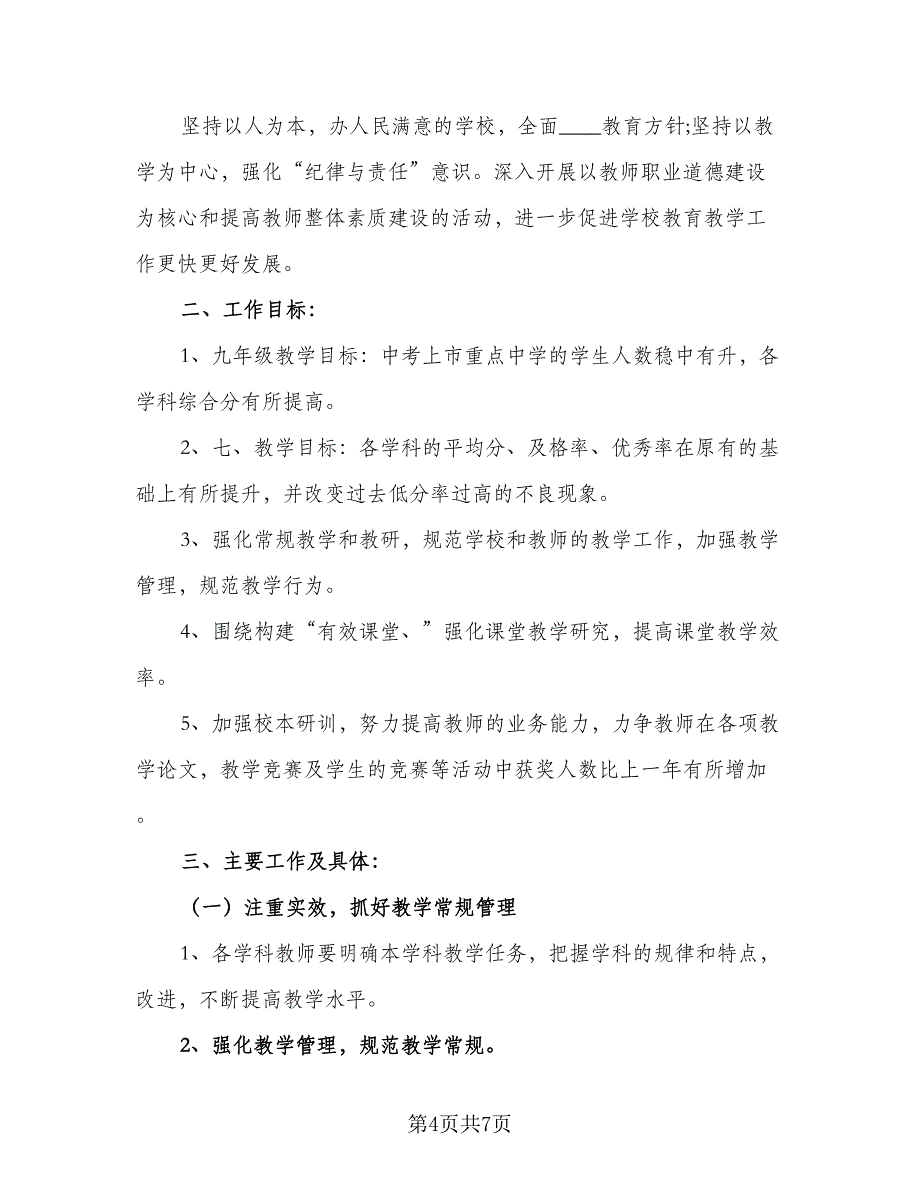 坚持以人为本，办人民满意的学校，全面____教育方针;坚持以教
学为中心，强化“纪律与责任”意识。深入开展以教师职业道德建设
为核心和提高教师整体素质建设的活动，进一步促进学校教育教学工
作更快更好发展。
二、工作目标：
1、九年级教学目标：中考上市重点中学的学生人数稳中有升，各
学科综合分有所提高。
2、七、教学目标：各学科的平均分、及格率、优秀率在原有的基
础上有所提升，并改变过去低分率过高的不良现象。
3、强化常规教学和教研，规范学校和教师的教学工作，加强教学
管理，规范教学行为。
4、围绕构建“有效课堂、”强化课堂教学研究，提高课堂教学效
率。
5、加强校本研训，努力提高教师的业务能力，力争教师在各项教
学论文，教学竞赛及学生的竞赛等活动中获奖人数比上一年有所增加
。
三、主要工作及具体：
（一）注重实效，抓好教学常规管理
1、各学科教师要明确本学科教学任务，把握学科的规律和特点，
改进，不断提高教学水平。
2、强化教学管理，规范教学常规。
第4页共7页